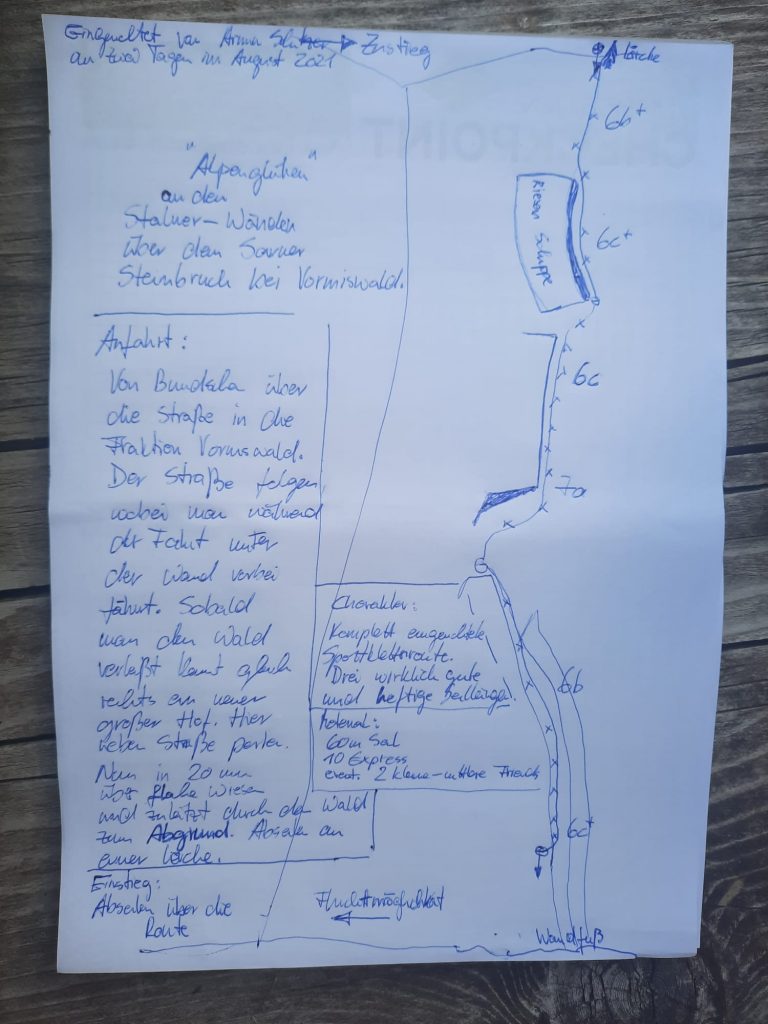 Eingerichtet von Armin → Zustieg
an zwei Tagen im August 2021
Lärche
6b+
"Alpenglühen"
an den
Stalner-Wänden
über dem Sarner
Steinbruch bei Vormiswald.
Riesen Schuppe
6c+
Anfahrt:
Von Bundschen über
die Straße in die
Fraktion Vormswald.
Der Straße folgen,
wobei man während
der Fahrt unter
der Wand vorbei
fährt. Sobald
man den Wald
verläßt kommt gleich
rechts ein neuer
großer Hof. Hier
neben Straße parken.
Nun in 20 min
über flache Wiesen
und zuletzt durch den Wald
zum Abgrund. Abseilen an
einer Lärche.
6c
7a
Charakter:
Komplett eingerichtete
Sportkletterroute.
Drei wirklich gute
und heftige Seillängen.
Material:
60m Seil
10 Express
event. 2 kleine-mittlere Friends
6b
6c+
Einstieg:
Abseilen über die
Route
Fluchtmöglichkeit
←
Wandfuß